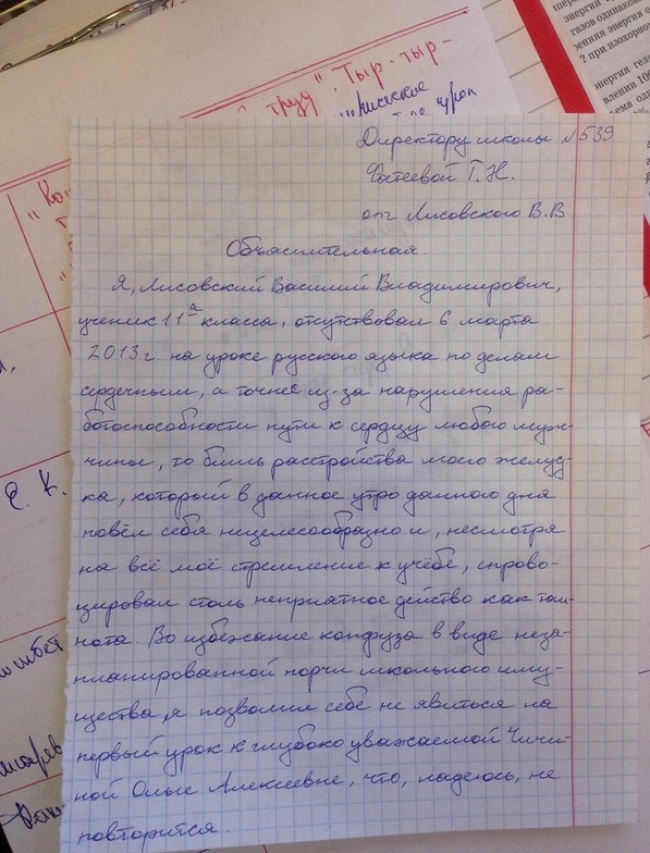 труд". Тыр-тыр-
Директору школы №539
Фатеевой Г.Н.
от Лисовского В.В
Объяснительная
Я, Лисовский Василий Владимирович,
ученик 11а класса, отсутствовал 6 марта
2013г. на уроке русского языка по делам
сердечным, а точнее из-за нарушения ра-
ботоспособности пути к сердцу любого муж-
чины, то бишь расстройства моего желуд-
ка, который в данное утро данного дня
повёл себя нецелесообразно и, несмотря
на всё моё стремление к учёбе, спрово-
цировал столь неприятное действо как тош-
нота. Во избежание конфуза в виде неза-
планированной порчи школьного иму-
щества, я позволил себе не явиться на
первый урок к глубоко уважаемой Чичи-
ной Ольге Алексеевне, что, надеюсь, не
повторится.
Е. К.
газов одинаков
? при изохорн